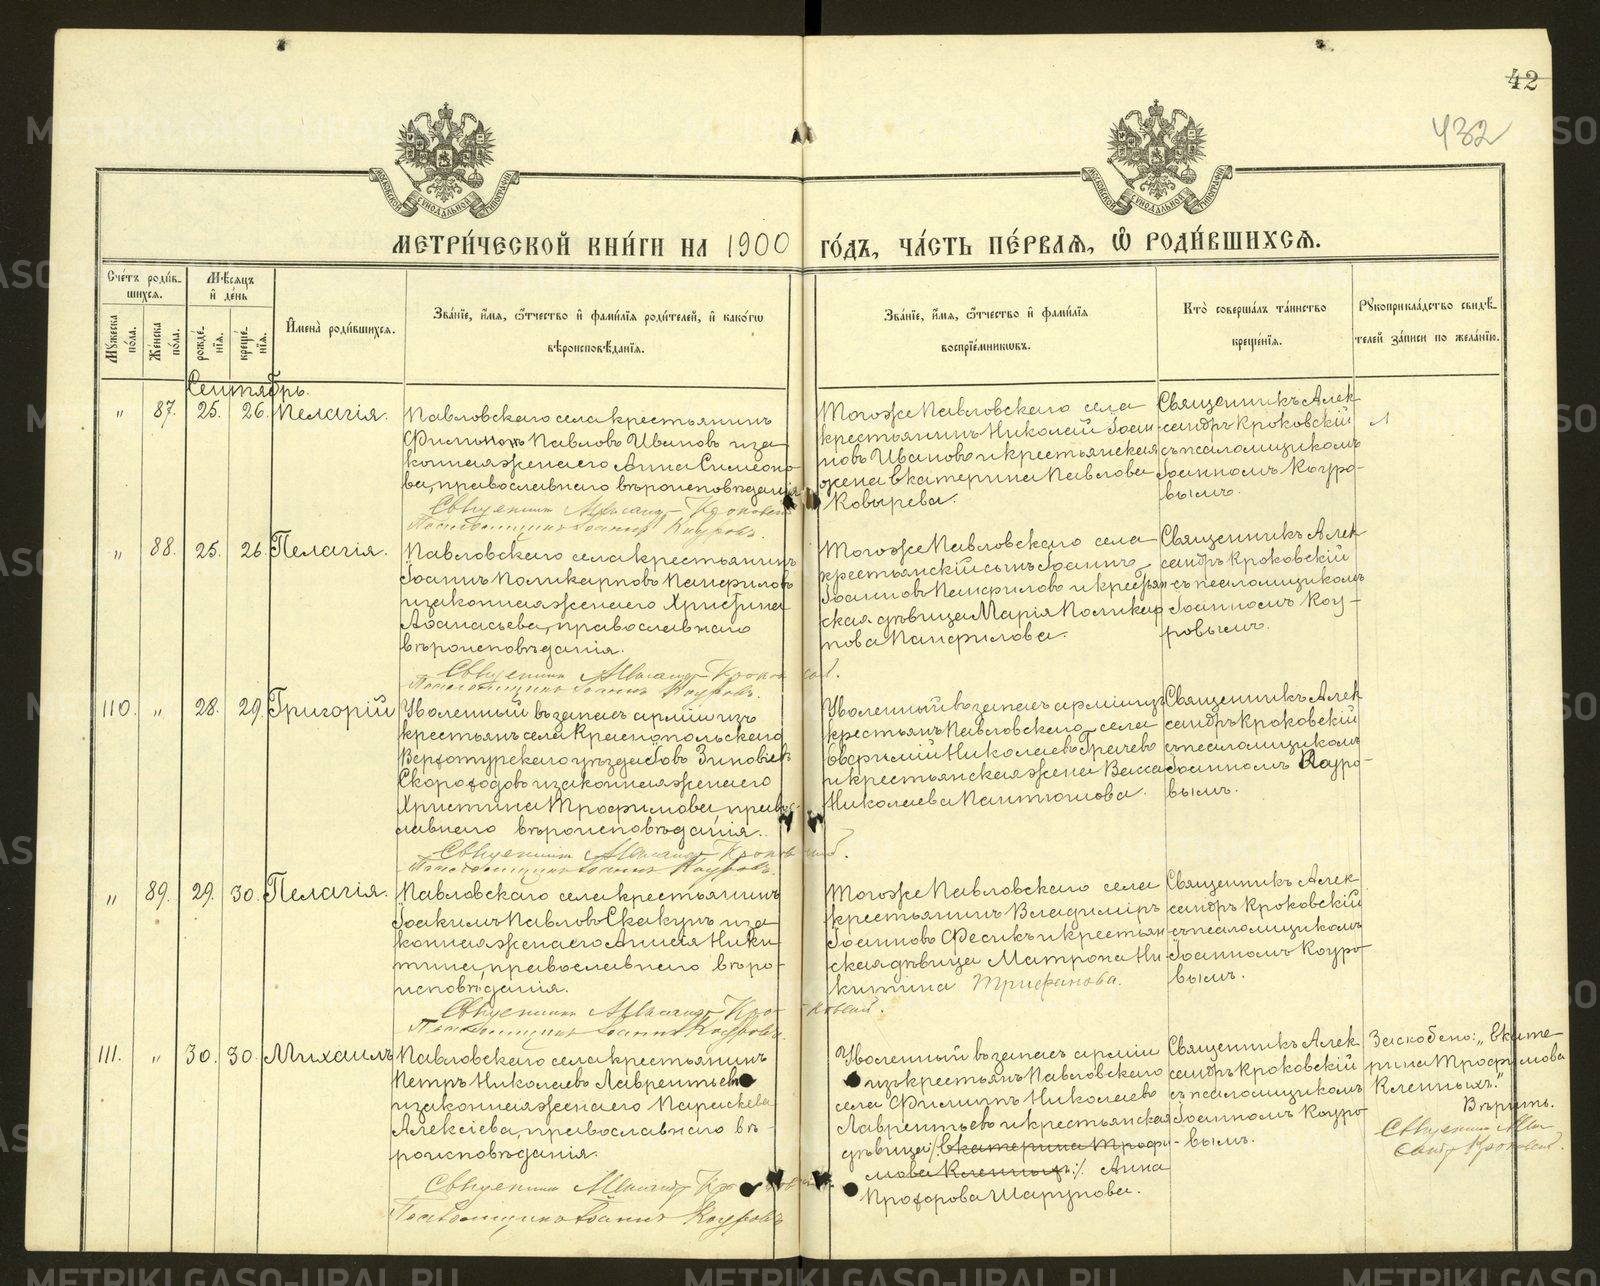 42
432
МЕТРИ́ЧЕСКОЙ КНИ́ГИ НА 1900 ГО́ДЪ, ЧА́СТЬ ПЕ́РВАЯ, Ѡ҆ РОДИ́ВШИХСЯ.
Сче́тъ роди́в-
шихся.
Мꙋжеска по́ла.
Же́нска по́ла.
Мѣ́сяцъ
и҆ де́нь
рожде́нїя.
креще́нїя.
И҆мена̀ роди́вшихся.
Зва́нїе, и҆́мя, ѻ҆́тчество и҆ фами́лїя роди́телей, и҆ како́гѡ
вѣроисповѣ́данїя.
Зва́нїе, и҆́мя, ѻ҆́тчество и҆ фами́лїя
воспрїе́мникѡвъ.
Кто̀ соверша́лъ та́инство
креще́нїя.
Рꙋкоприкла́дство свидѣ́-
телей за́писи по жела́нїю.
Сентябрь.
" 87. 25. 26. Пелагія.
Павловскаго села крестьянинъ
Филиппъ Павловъ Ивановъ и за-
конная жена его Анна Симеоно-
ва, православнаго вѣроисповѣданія
Священникъ Александръ Кроковскій
Псаломщикъ Іоаннъ Кауровъ.
Тогоже Павловскаго села
крестьянинъ Николай Іоан-
новъ Ивановъ и крестьянская
жена Екатерина Павлова
Ковырева.
Священникъ Алек-
сандръ Кроковскій
съ псаломщикомъ
Іоанномъ Кауро-
вымъ.
" 88. 25. 26. Пелагія.
Павловскаго села крестьянинъ
Іоаннъ Поликарповъ Панфиловъ
и законная жена его Христина
Аѳанасьева, православнаго
вѣроисповѣданія.
Священникъ Александръ Кроковскій.
Псаломщикъ Іоаннъ Кауровъ.
Тогоже Павловскаго села
крестьянскій сынъ Іоаннъ
Іоанновъ Панфиловъ и крестьян-
ская дѣвица Марія Поликар-
пова Панфилова.
Священникъ Алек-
сандръ Кроковскій
съ псаломщикомъ
Іоанномъ Кау-
ровымъ.
110. " 28. 29. Григорій
Уволенный въ запасъ арміи изъ
крестьянъ села Краснопольскаго
Верхотурскаго уѣзда Іовъ Зиновіевъ
Скороходовъ и законная жена его
Христина Трофимова, правос-
лавнаго вѣроисповѣданія.
Священникъ Александръ Кроковскій.
Псаломщикъ Іоаннъ Кауровъ.
Уволенный въ запасъ арміи изъ
крестьянъ Павловскаго села
Евфимій Николаевъ Грачевъ
и крестьянская жена Васса
Николаева Пантюшова.
Священникъ Алек-
сандръ Кроковскій
съ псаломщикомъ
Іоанномъ Кауро-
вымъ.
" 89. 29. 30. Пелагія.
Павловскаго села крестьянинъ
Іоакимъ Павловъ Скакунъ и за-
конная жена его Анисія Ники-
тина, православнаго вѣро-
исповѣданія.
Священникъ Александръ Кроковскій.
Псаломщикъ Іоаннъ Кауровъ.
Тогоже Павловскаго села
крестьянинъ Владиміръ
Іоанновъ Фесикъ и крестьян-
ская дѣвица Матрона Ни-
китина Трифанова.
Священникъ Алек-
сандръ Кроковскій
съ псаломщикомъ
Іоанномъ Кауро-
вымъ.
111. " 30. 30. Михаилъ
Павловскаго села крестьянинъ
Петръ Николаевъ Лаврентьевъ
и законная жена его Параскева
Алексіева, православнаго вѣ-
роисповѣданія.
Священникъ Александръ Кроковскій
Псаломщикъ Іоаннъ Кауровъ
Уволенный въ запасъ арміи
изъ крестьянъ Павловскаго
села Филиппъ Николаевъ
Лаврентьевъ и крестьянская
дѣвица /:Екатерина Трофи-
мова Клепныхъ:/ Анна
Прохорова Шарунова.
Священникъ Алек-
сандръ Кроковскій
съ псаломщикомъ
Іоанномъ Кауро-
вымъ.
Заскоблено: „Екате-
рина Трофимова
Клепныхъ."
Вѣрить.
Священникъ Алек-
сандръ Кроковскій.
METRIKI.GASO-URAL.RU